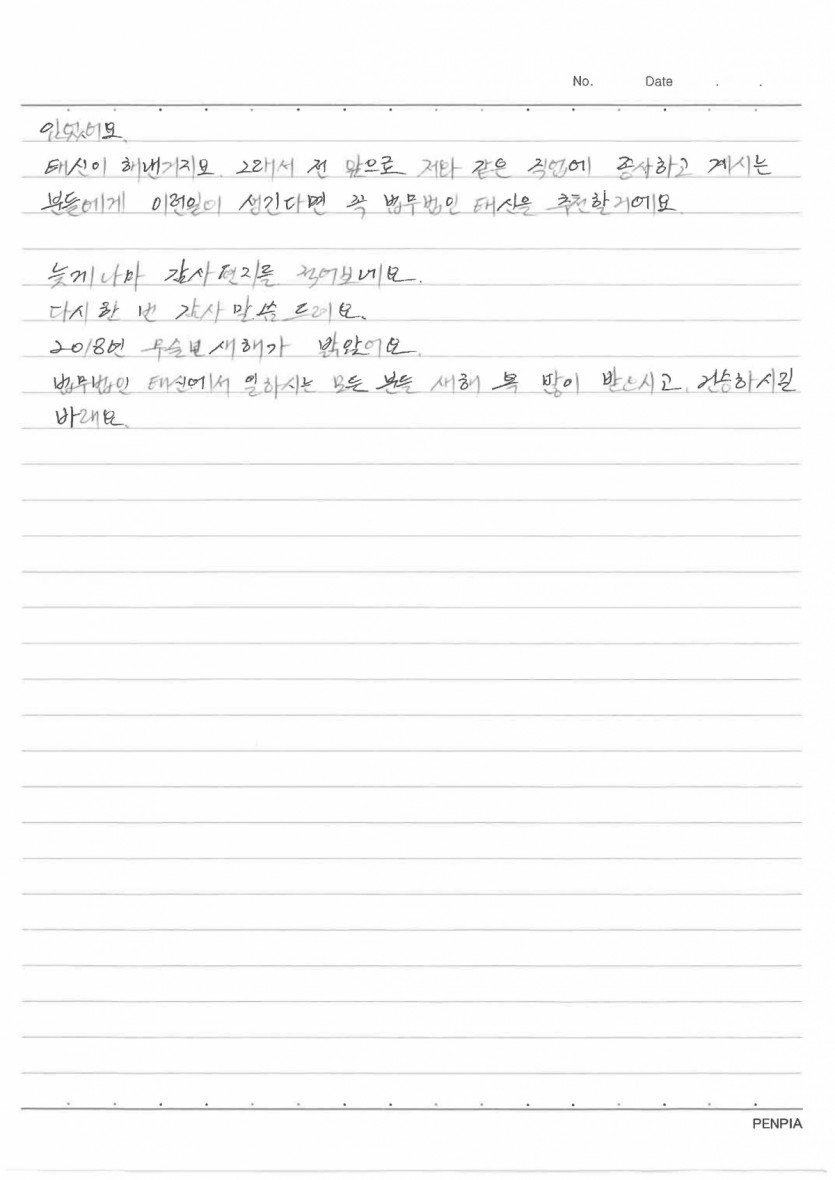 No. Date . .
안았어요.
태신이 해낸거지요. 그래서 전 앞으로 저와 같은 직업에 종사하고 계시는
분들에게 이런일이 생긴다면 꼭 법무법인 태신을 추천할거에요.
늦게나마 감사편지를 적어보네요.
다시 한 번 감사 말씀 드려요.
2018년 무술년 새해가 밝았어요.
법무법인 태신에서 일하시는 모든 분들 새해 복 많이 받으시고, 건승하시길
바래요.
PENPIA